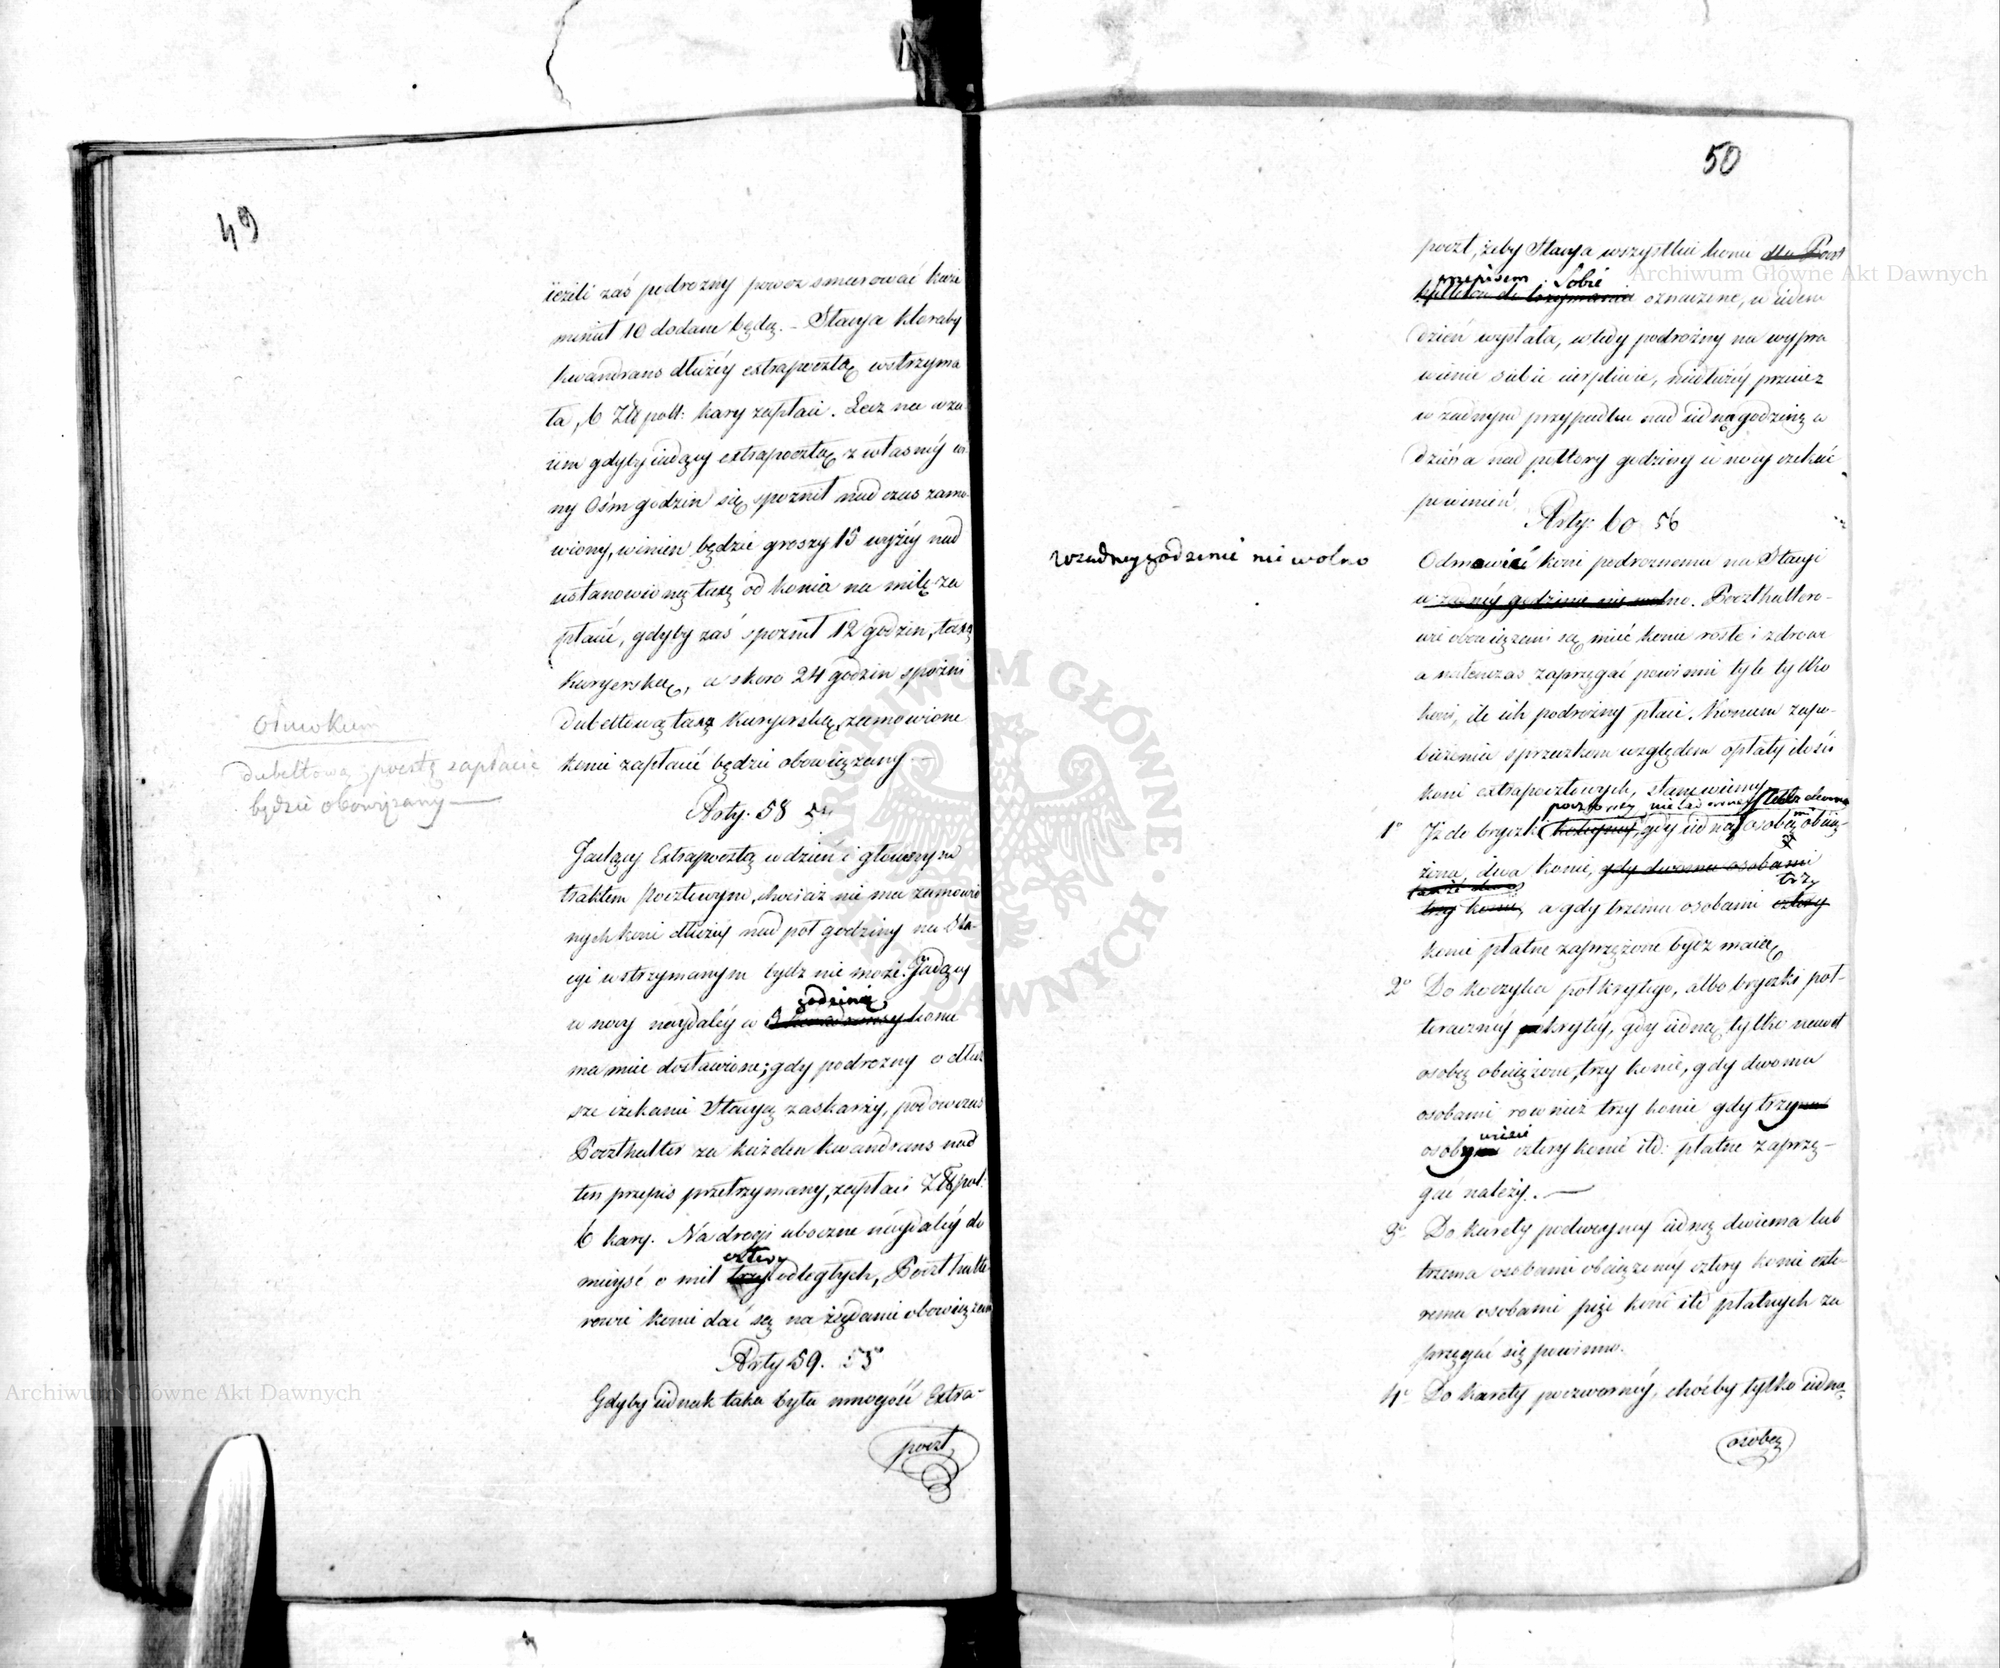 49
ieżeli zaś podrozny powoz smarować każe
minut 10 dodane będą. – Stacya ktoraby
kwandrans dłużéy extrapocztę wstrzyma
ła, 6 Złł poll: kary zapłaci. Lecz na wza
iem gdyby iadący extrapocztą z własnéy wi
ny Ośm godzin się spoznił nad czas zamo
wiony, winien będzie groszy 15 wyżéy nad
ustanowioną taxę od konia na milę za
płacić, gdyby zaś spoznił 12 godzin, taxę
Kuryerską, a skoro 24 godzin spożni
Dubeltową taxę Kuryerską, zamowione
konie zapłacić będzie obowiązany –
dubeltową pocztę zapłacić
będzie obowiązany —
Arty. 58 54
Jadący Extrapocztą w dzień i głownym
traktem Pocztowym, chociaż nie ma zamowio
nych koni dłużéy nad poł godziny na Sta-
cyi wstrzymanym bydz nie może. Jadący
godzinę
w nocy naydaléy w 3 kwandransy konie
ma mieć dostawione; gdy podrozny o dłuż
sze czekanie Stacyą zaskarży, podowczas
Poczthalter za każden kwandrans nad
ten przepis przetrzymany, zapłaci Złł pol:
6 kary. Na drogi uboczne naydaléy do
cztery
mieysc o mil trzy odległych, Poczthalte-
rowie konie dać są na żądanie obowiązani
Arty 59. 55
Gdyby iednak taka była mnogość Extra-
poczt
50
poczt, żeby Stacya wszystkie konie dla Poczt
przepisem Sobie
oznaczone, w ieden
Dzień wysłała, wtedy podrożny na wypra
wienie siebie cierpliwie, niedłużéy przecież
w żadnym przypadku nad iedną godzinę w
Dzień a nad połtory godziny w nocy czekać
powinien
Arty: 60 56
w żadney godzinie nie wolno
Odmowić koni podroznemu na Stacyi
w żadnéy godzinie nie wolno. Poczthaltero-
wie obowiązani są mieć konie rosłe i zdrowe
a natenczas zaprzęgać powinni tyle tylko
koni, ile ich podrożny płaci. Koncem zapo-
bieżenia sprzeczkom względem opłaty ilości
koni extrapocztowych, stanowiemy
pocztowey
1° Iż do bryczki gdy iedną osobą obcią-
żona, dwa konie, gdy dwoma osobami
trzy
trzy konie, a gdy trzema osobami cztery
konie płatne zaprzężone bydz maią
2° Do koczyka połkrytego, albo bryczki poł-
toracznéy pokrytéy, gdy iedną tylko nawet
osobą obciążone, trzy konie, gdy dwoma
osobami rownież trzy konie gdy trzy
osoby cztery konie itd: płatne zaprzę-
gać należy. —
3° Do karéty podwoynéy iedną dwiema lub
trzema osobami obciążonéy cztery konie czte-
rema osobami pięć koni itd płatnych za
przęgać się powinno.
4° Do karéty poczwornéy, choćby tylko iedną
osobą
Archiwum Główne Akt Dawnych
Archiwum Główne Akt Dawnych
ARCHIWUM GŁÓWNE AKT DAWNYCH